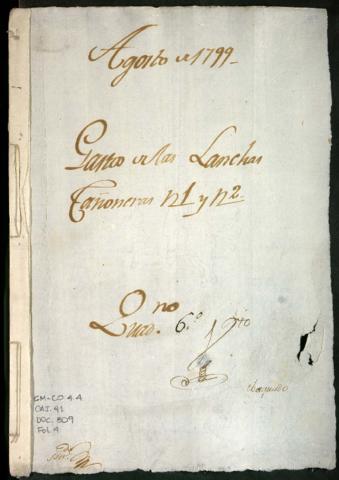 Agosto de 1799_
Gastos de las Lanchas
Cañoneras n1 y n2.
Quad.no 6.o
GM-CO 4.4
CAJ. 41
DOC. 309
FOL 4